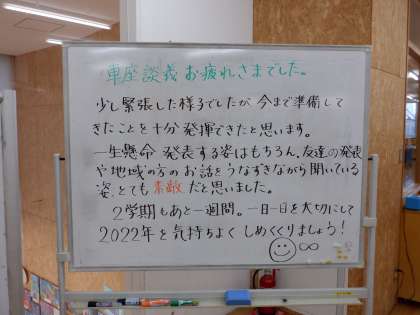 車座談義お疲れさまでした。
少し緊張した様子でしたが、今まで準備して
きたことを十分発揮できたと思います。
一生懸命発表する姿はもちろん、友達の発表
や地域の方のお話をうなずきながら聞いている
姿、とても素敵だと思いました。
2学期もあと一週間。一日一日を大切にして
2022年を気持ちよくしめくくりましょう!